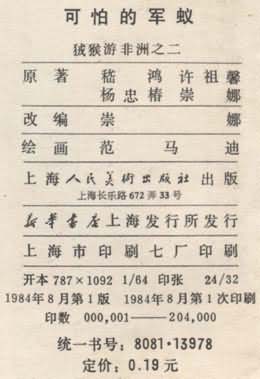 可怕的军蚁
绒猴游非洲之二
原著 嵇鸿 许祖馨
杨忠椿 崇娜
改编 崇娜
绘画 范马迪
上海人民美术出版社出版
上海长乐路672弄33号
新华书店上海发行所发行
上海市印刷七厂印刷
开本 787×1092 1/64 印张 24/32
1984年8月第1版 1984年8月第1次印刷
印数 000,001——204,000
统一书号：8081·13978
定价：0.19元